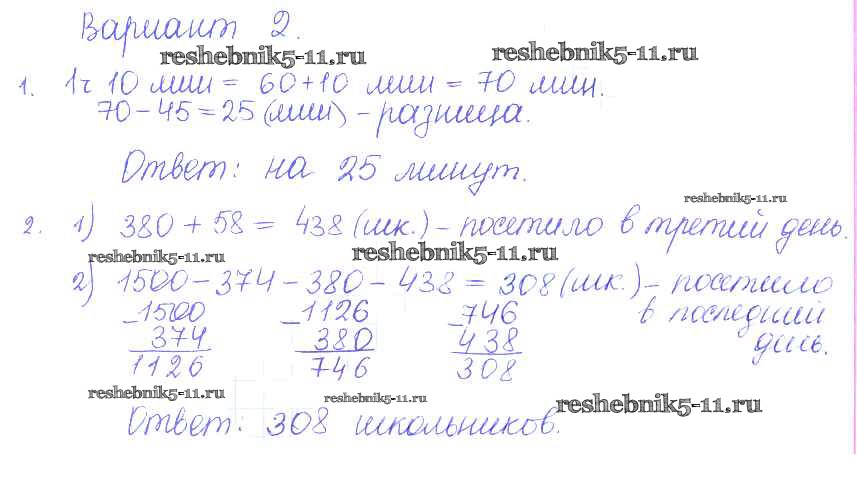 Вариант 2.
reshebnik5-11.ru reshebnik5-11.ru
1. 1ч 10 мин = 60+10 мин = 70 мин.
70 - 45 = 25 (мин) - разница.
Ответ: на 25 минут.
reshebnik5-11.ru
2. 1) 380 + 58 = 438 (шк.) - посетило в третий день.
reshebnik5-11.ru reshebnik5-11.ru
2) 1500 - 374 - 380 - 438 = 308 (шк.) - посетило
_1500 _1126 _746 в последний
374 380 438 день.
1126 746 308
reshebnik5-11.ru reshebnik5-11.ru reshebnik5-11.ru
Ответ: 308 школьников.